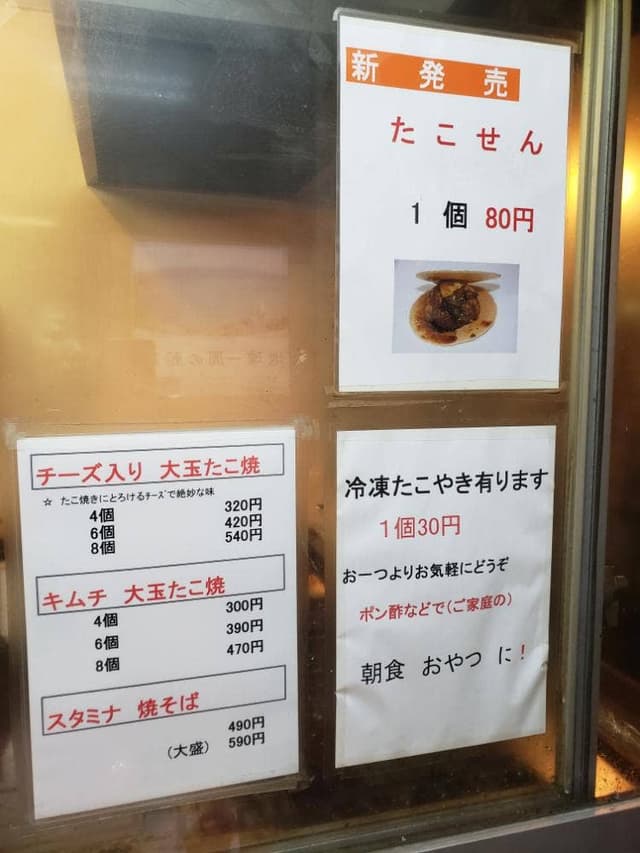 新発売
たこせん
1個 80円
チーズ入り 大玉たこ焼
☆ たこ焼きにとろけるチーズで絶妙な味
4個 320円
6個 420円
8個 540円
キムチ 大玉たこ焼
4個 300円
6個 390円
8個 470円
スタミナ 焼そば
490円
(大盛) 590円
冷凍たこやき有ります
1個30円
お一つよりお気軽にどうぞ
ポン酢などで(ご家庭の)
朝食 おやつ に!